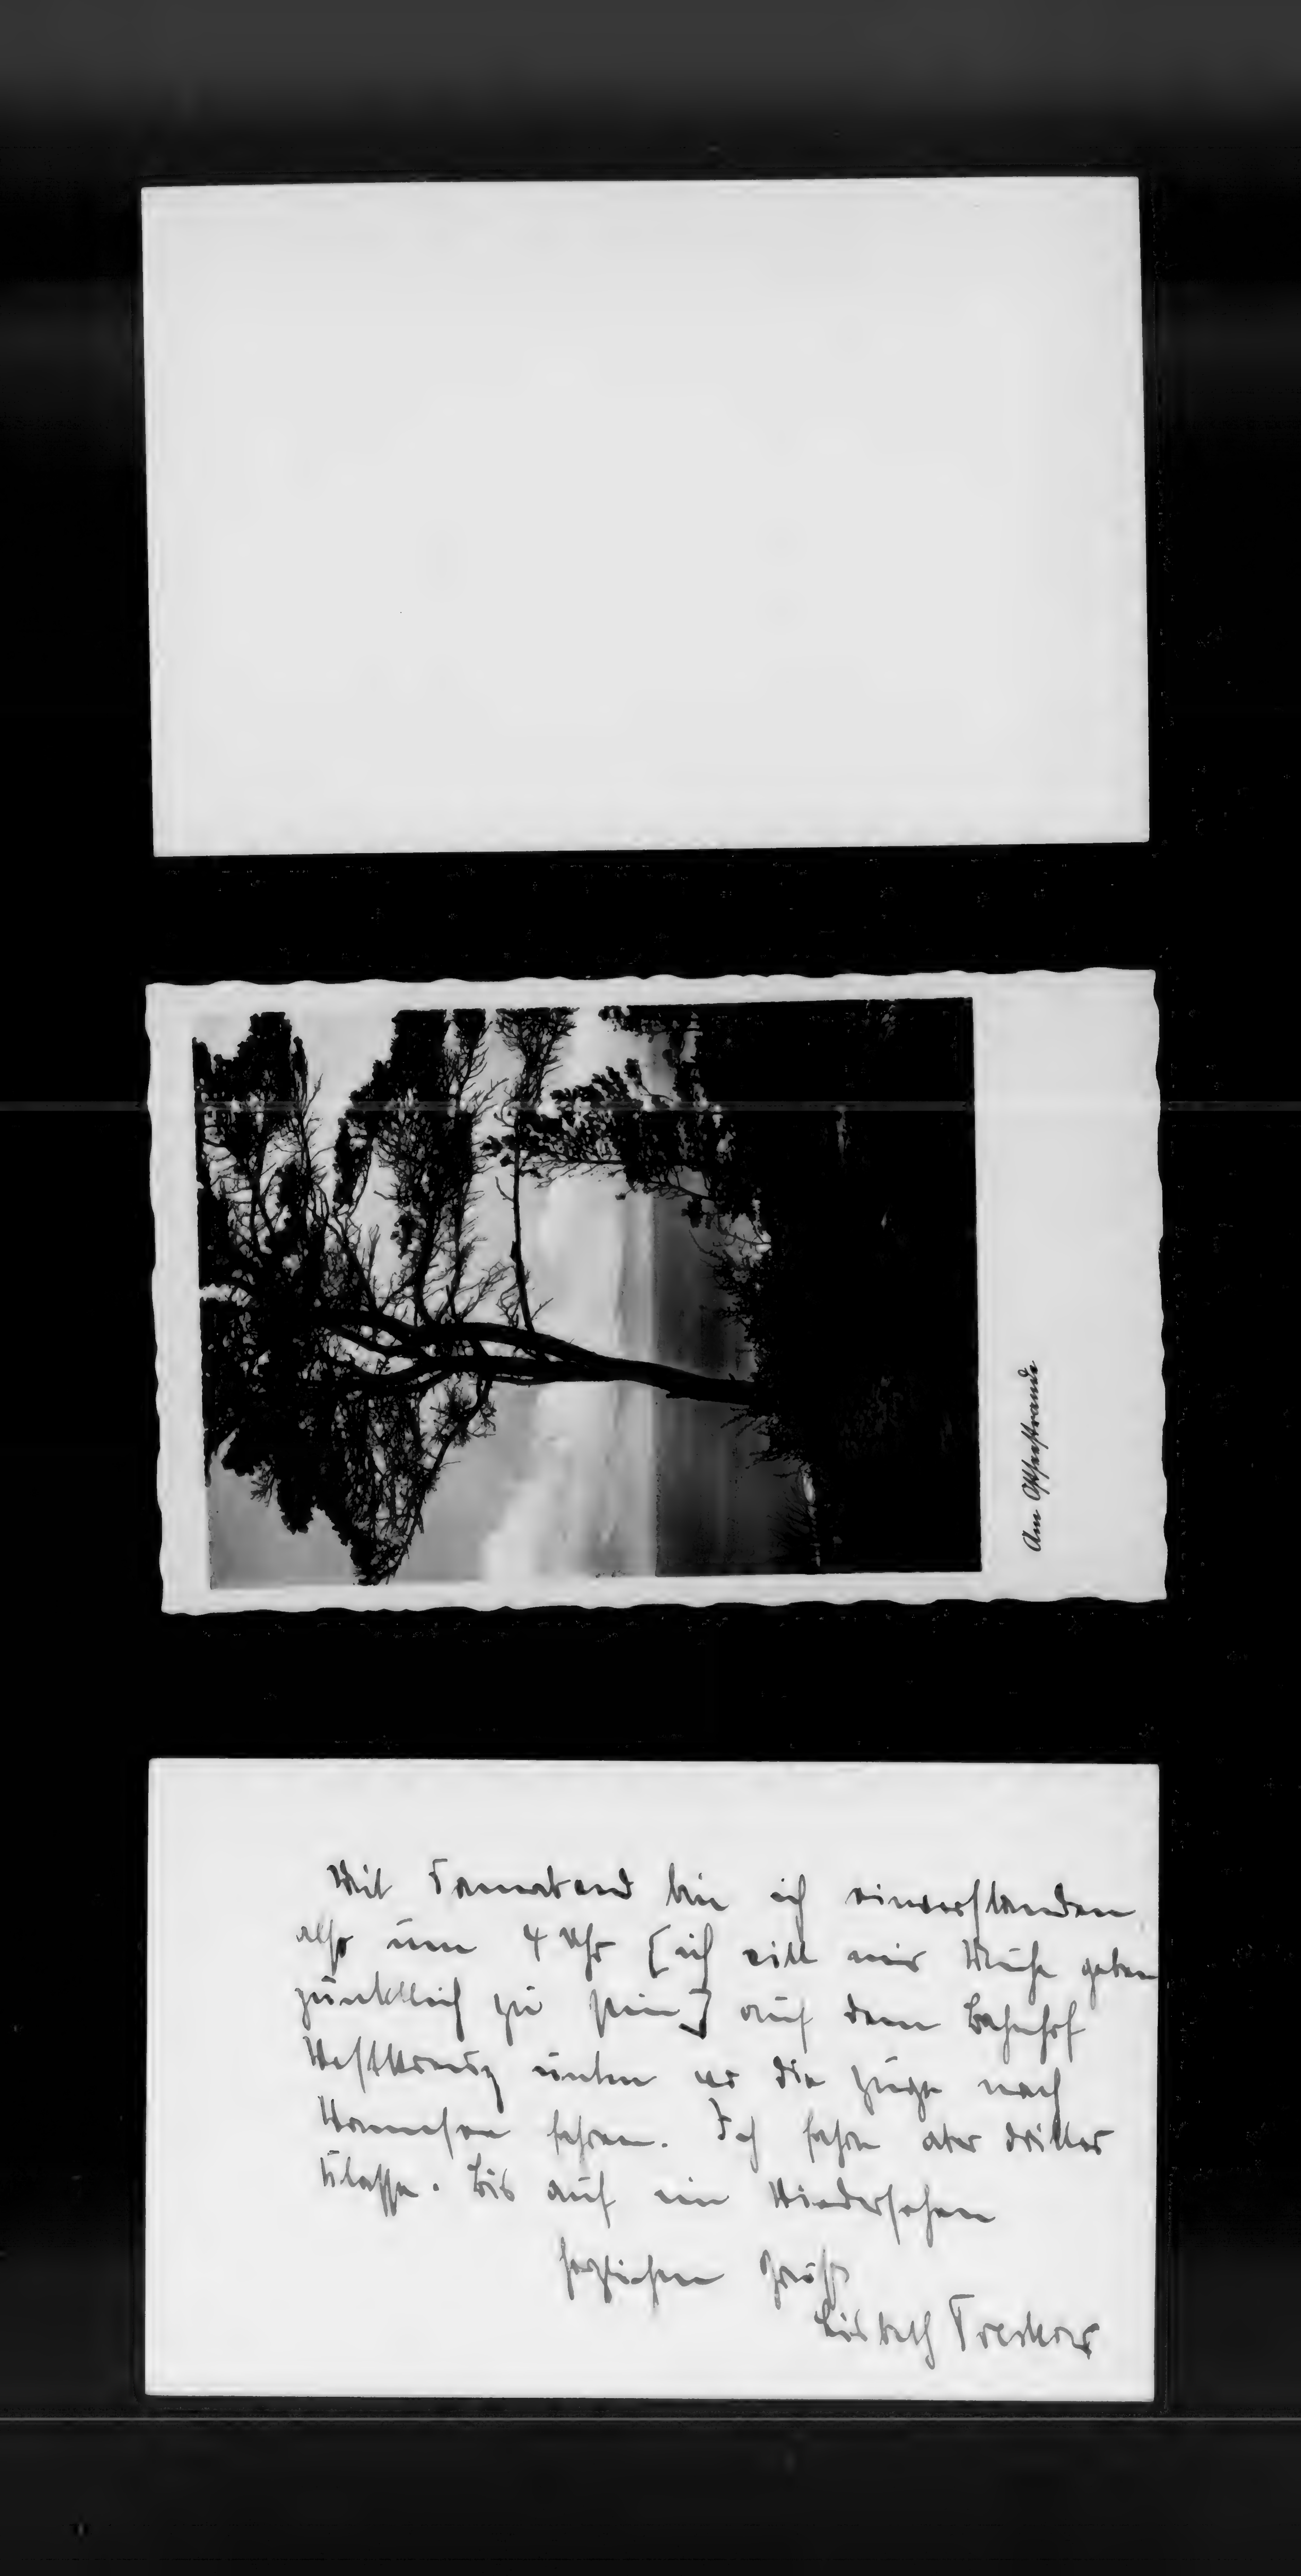 Am Ostseestrande
Mit Sonnabend bin ich einverstanden
also um 4 Uhr [ich will mir Mühe geben
pünktlich zu sein] auf dem Bahnhof
Westkreuz unten wo die Züge nach
Wannsee fahren. Ich fahre aber dritter
Klasse. Bis auf ein Wiedersehen
herzlichen Gruß
Lisbeth